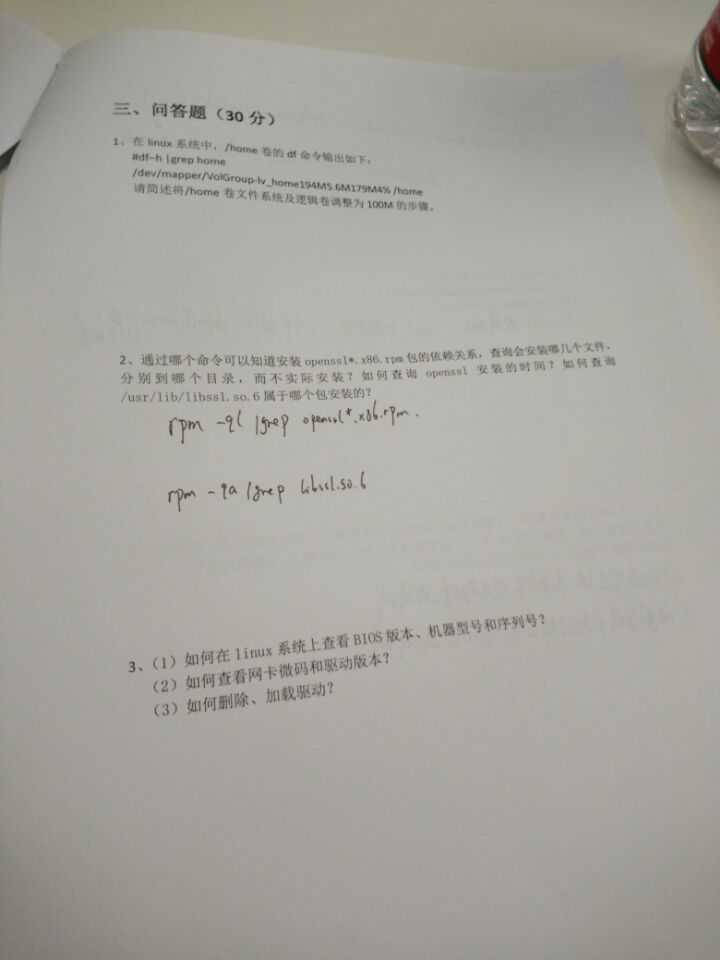 三、问答题（30 分）
1、在 linux 系统中，/home 卷的 df 命令输出如下：
#df–h |grep home
/dev/mapper/VolGroup-lv_home194M5.6M179M4% /home
请简述将/home 卷文件系统及逻辑卷调整为 100M 的步骤。
2、通过哪个命令可以知道安装 openssl*.x86.rpm 包的依赖关系，查询会安装哪几个文件、
分别到哪个目录，而不实际安装？如何查询 openssl 安装的时间？如何查询
/usr/lib/libssl.so.6 属于哪个包安装的？
rpm -ql |grep openssl*.x86.rpm.
rpm -qa |grep libssl.so.6
3、（1）如何在 linux 系统上查看 BIOS 版本、机器型号和序列号？
（2）如何查看网卡微码和驱动版本？
（3）如何删除、加载驱动？